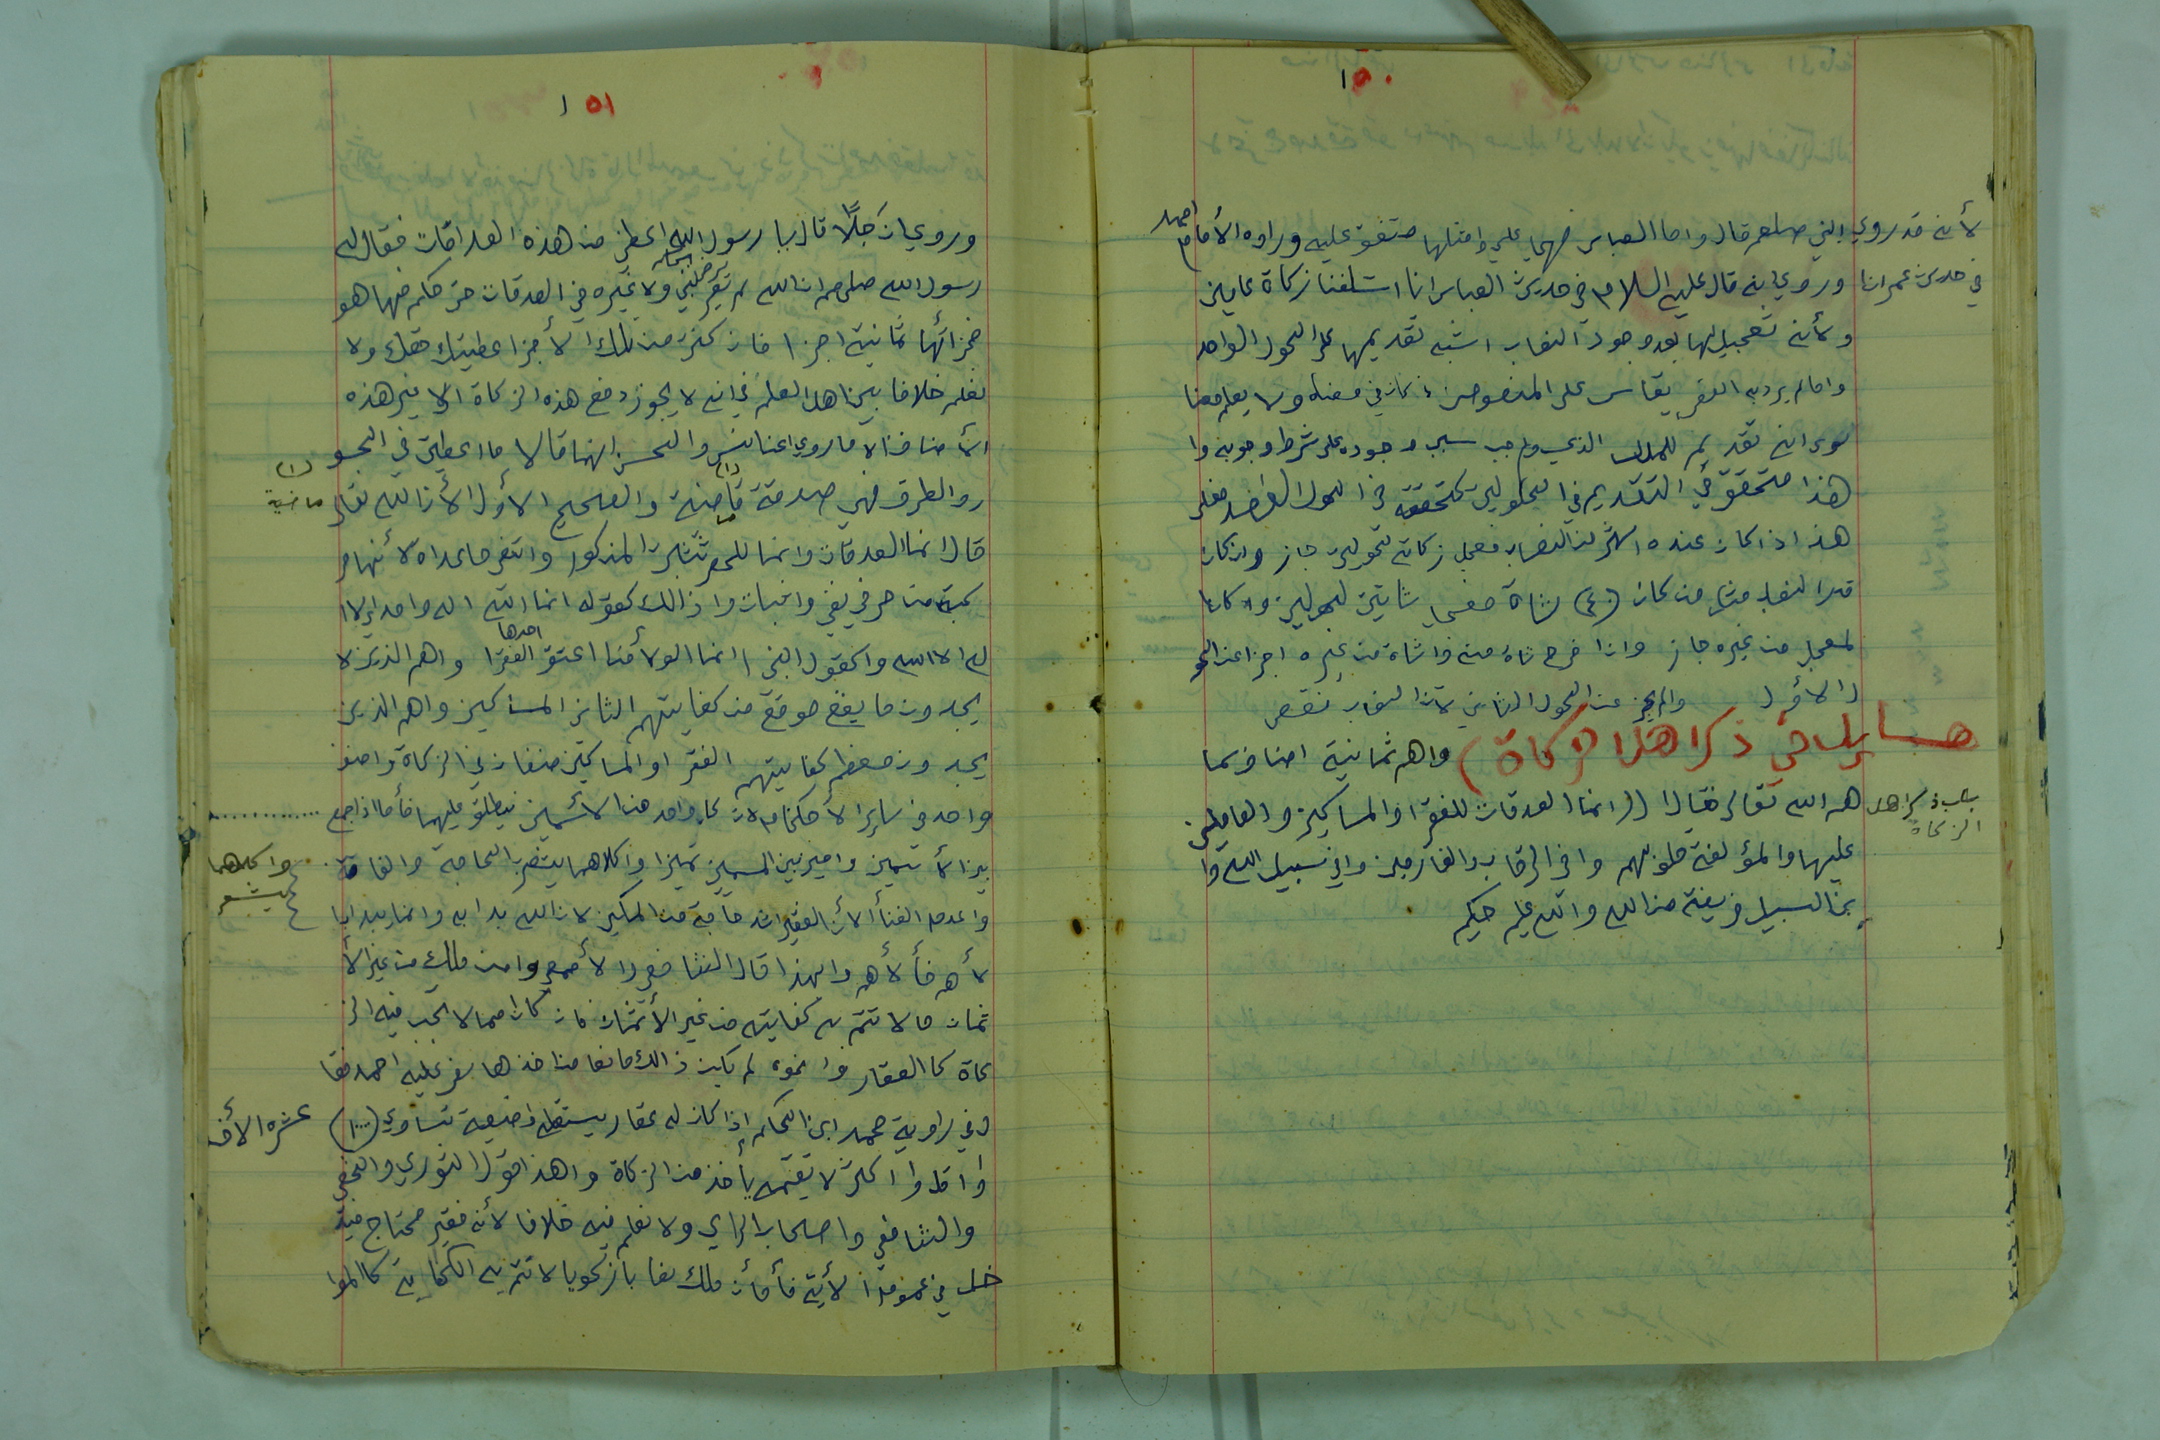 ١٥٠
لأنه قد روي النبي صلعم قال واما العباس فهي علي وامثلها متفق عليه وراوه الأمام احمد
في حديث عمر انا وروي انه قال عليه السلام في حديث العباس انا استلفنا زكاة عامين
ولأنه تعجيل لها بعد وجود النصاب اشبه تقديمها على الحول الواحد
واما لم يرد به النص يقاس على المنصوص اذ كان في معناه ولا يعلم معنا
سوى انه تقديم للمال الذي وجب سبب وجوده على شرط وجوبه وا
هذا متحقق في التقديم في الحولين كتحققه في الحول الواحد فعلى
هذا اذا كان عنده اكثر من النصاب فعجل زكاته لحولين جاز وان كان
قدر النصاب مثل من كان (٤٠) شاة فعجل شاتين لحولين وكان ا
لمعجل من غيره جاز واذا خرج شاة منه وا شاة من غيره اجزا عن الحو
ل الأول والم يجز عن الحول الثاني لان النصاب نقص
مسايل في ذكر اهل الزكاة) واهم ثمانية اصناف سما
باب ذكر اهل الزكاة
هم الله تعالى فقال (( انما الصدقات للفقرا والمساكين والعاملين
عليها والمؤلفة قلوبهم وا في الرقاب والغارمين وا في سبيل الله وا
بن السبيل فريضة من الله والله عليم حكيم
١٥١
وروي ان رجلًا قال يا رسول الله اعطني من هذه الصدقات فقال له
رسول الله صلى صلعم ان الله سبحانه لم يرضى بنبي ولا غيره في الصدقات حتى حكم فيها هو
فجزائها ثمانية اجزا فان كنت من تلك الأجزا اعطيتك حقك ولا
نعلم خلافا بين اهل العلم في انه لا يجوز دفع هذه الزكاة الا غير هذه
الأصناف الا ما روي اعنا انس والحسن انهما قالا ما اعطيت في الجسو
ر والطرق فهي صدقة قاضية (١) والصحيح الأول لأن الله تعالى
(١) ماضية
قال انما الصدقات وانما للحصر تثبت المذكور وانتفى ما عداه لأنها مر
كبة من حرفي نفي واثبات واذالك كقوله انما الله اله واحد اي لا ا
له الا الله وا كقول النبي انما الولأ لمن اعتق احدها الفقرا واهم الذين لا
يجدون ما يقع موقع من كفايتهم الثاني المساكين واهم الذين
يجدون معظم كفايتهم الفقرا والمساكين صنفان في الزكاة واصنف
واحد في ساير الأحكام لان كل واحد من الأسمين ينطلق عليهما فأما اذا جمع
بين الأسمين واميز بين المسميين تميزا واكلاهما يشعر بالحاجة والفاقة
واكلاهما يشعر
واعدم الغنأ الأ ان الفقير اشد حاجة من المسكين لان الله بدا به وانما يبدا با
لأهم فألأهم والهذا قال الشافعي والأصمعي وامن ملك من غير الأ
ثمان ما لا تتم به كفايته من غير الأثمان فان كان مما لا تجب فيه الز
كاة كا العقار وا نحوه لم يكن ذالك مانعا من اخذها نص عليه احمد فقا
ل في راوية محمد ابن الحكم إذا كان له عقار يستغله واضيعة تساوي (١٠٠٠٠)
عشره الأف
وا اقل وا اكثر لا تقيمه يأخذ من الزكاة واهذا قول الثوري والنخعي
والشافعي واصحاب الراي ولا نعلم فيه خلافا لأنه فقير محتاج فيد
خل في عموم الأية فأما ان ملك نصابا زكويا لا تتم به الكفاية كالموا